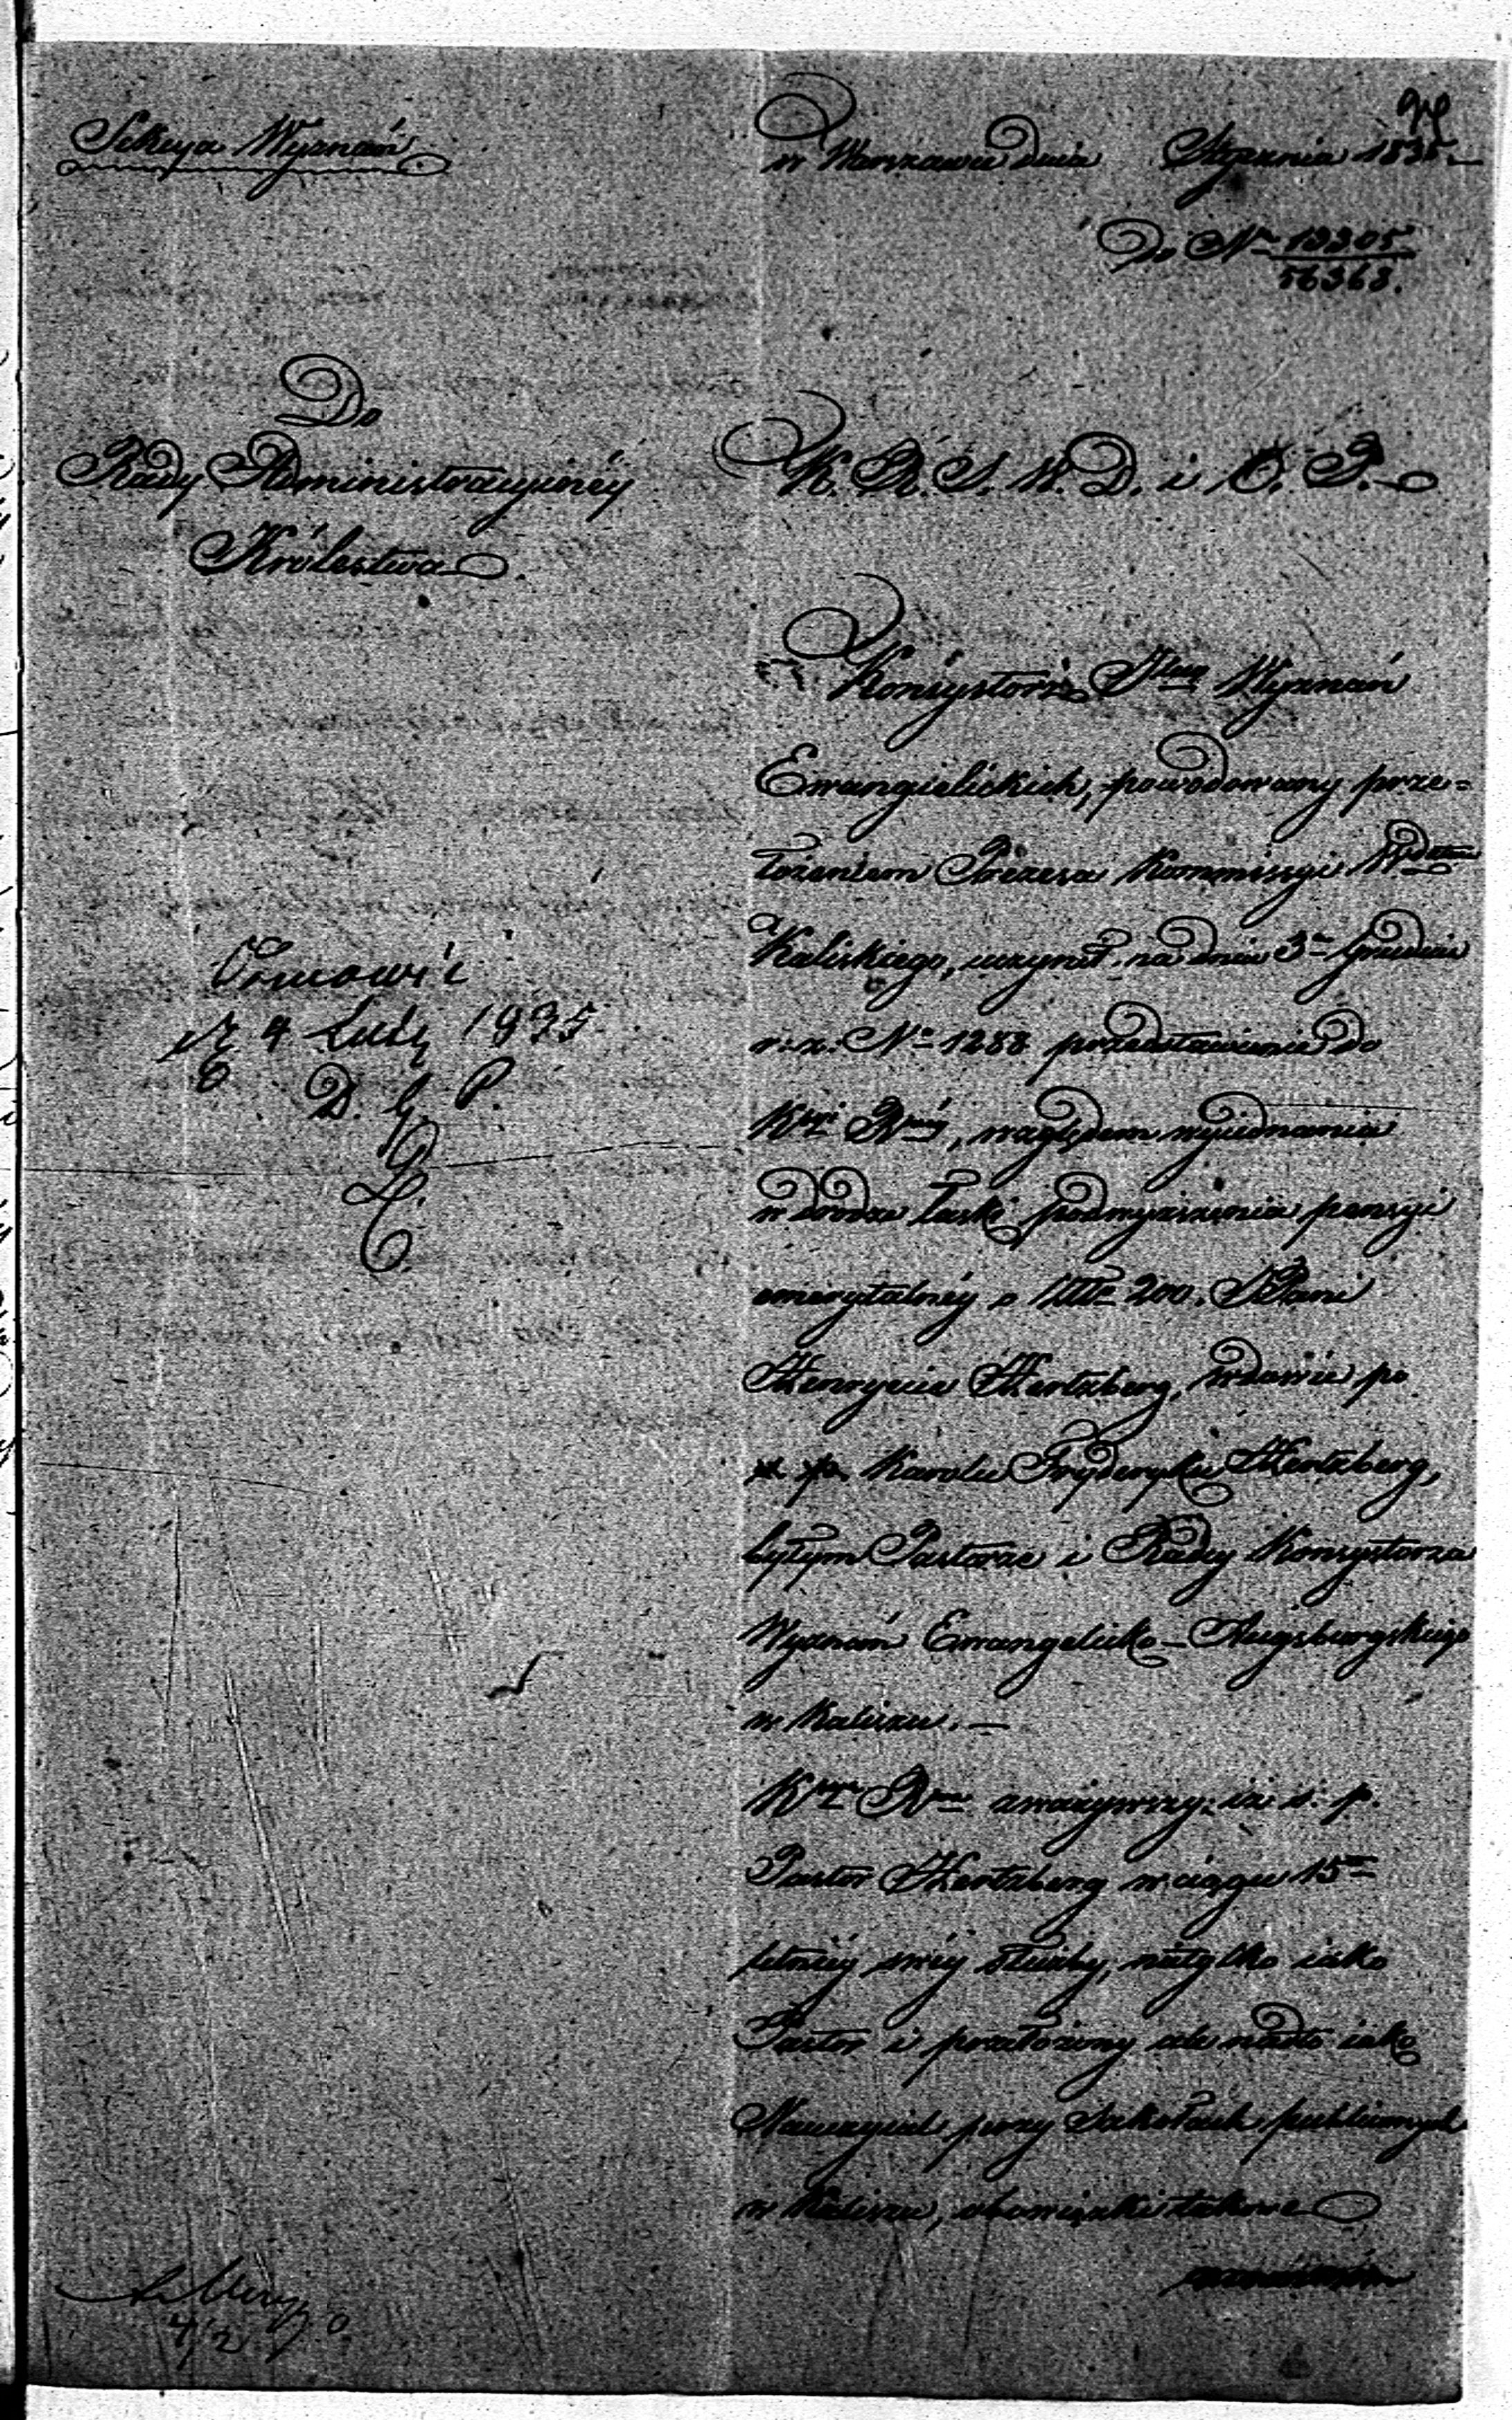 Sekcya Wyznań
w Warszawie dnia Stycznia 1835.
Do Nr 13305
56363.
Do
Rady Administracyinéy
Królestwa
K. R. S. W. D. i O. P.
Konsystorz Jlny Wyznań
Ewangielickich, powodowany prze=
łożeniem Prezesa Kommissyi Wdztwa
Kaliskiego, uczynił na dniu 3m Grudnia
r. z. No 1288 przedstawienie do
Kssyi Rwéy, względem wyiednania
w drodze Łaski podwyższenia pensyi
emerytalnéy o 200. Pani
Henrycie Hertzberg, wdowie po
ś. p. Karolu Fryderyku Hertzberg,
byłym Pastorze i Radcy Konsystorza
Wyznań Ewangelicko-Augsburgskiego
w Kaliszu.
Kssya Rwa zważywszy, iż ś. p.
Pastor Hertzberg w ciągu 15to
letniéy swéy służby, nietylko iako
Pastor i przełożony ale nadto iako
Nauczyciel przy Szkołach publicznych
w Kaliszu, obowiązki takowe
4 Luty 1835
D. G. P.
4/2